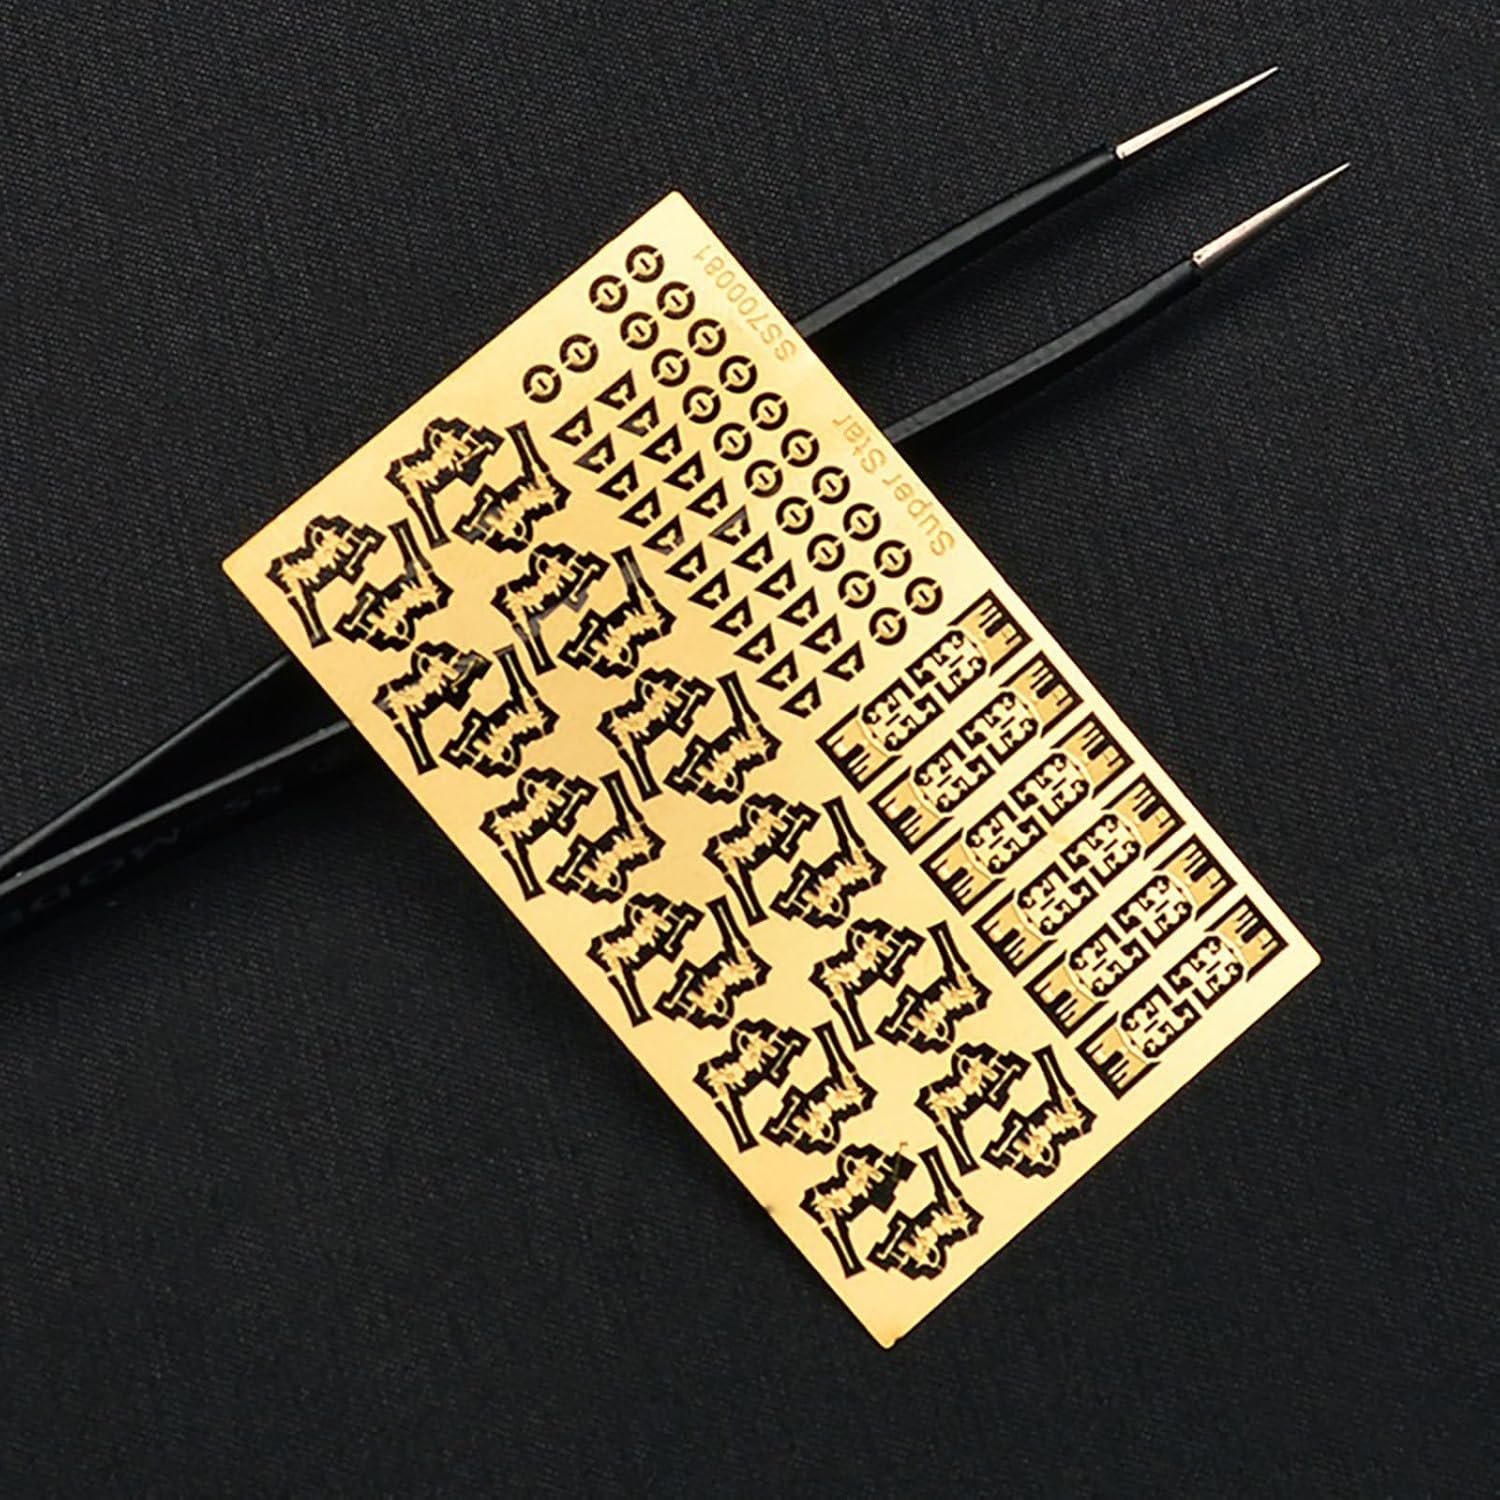 SS700081
Super Star